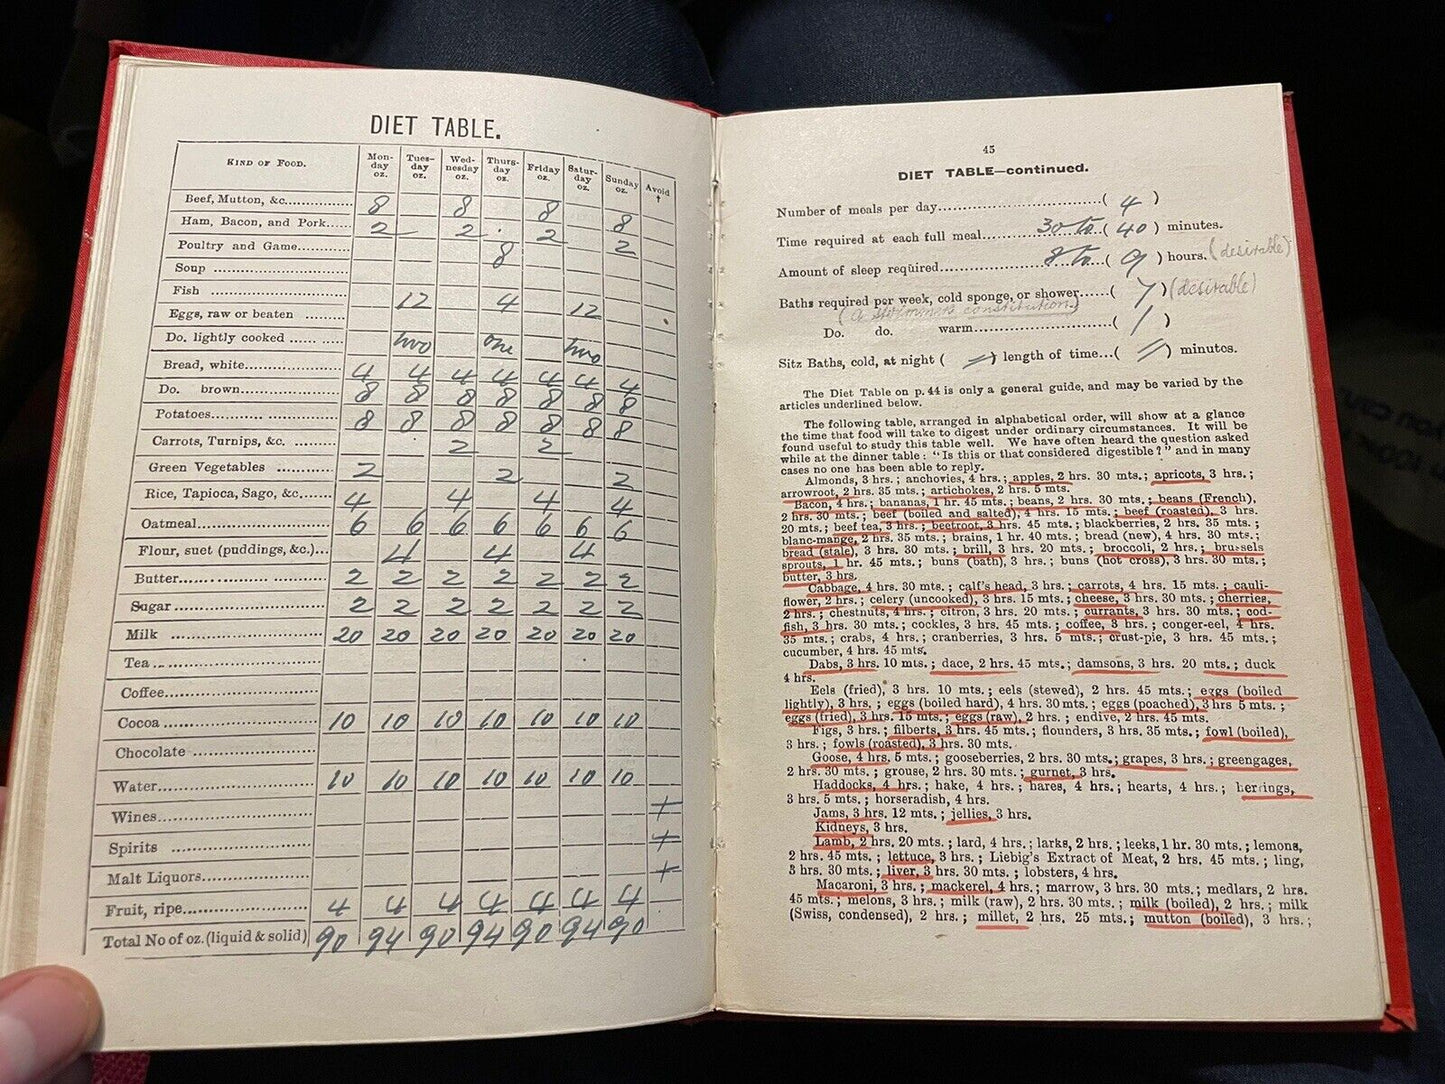 DIET TABLE.
KIND OF FOOD. Mon-day oz. Tues-day oz. Wed-nesday oz. Thurs-day oz. Friday oz. Satur-day oz. Sunday oz. Avoid †
Beef, Mutton, &c. 8 8 8 8
Ham, Bacon, and Pork 2 2 2 2
Poultry and Game 8
Soup
Fish 12 4 12
Eggs, raw or beaten
Do. lightly cooked two one two
Bread, white 4 4 4 4 4 4 4
Do. brown 8 8 8 8 8 8 8
Potatoes 8 8 8 8 8 8 8
Carrots, Turnips, &c. 2 2
Green Vegetables 2 2 2
Rice, Tapioca, Sago, &c. 4 4 4 4
Oatmeal 6 6 6 6 6 6 6
Flour, suet (puddings, &c.) 4 4 4
Butter 2 2 2 2 2 2 2
Sugar 2 2 2 2 2 2 2
Milk 20 20 20 20 20 20 20
Tea
Coffee
Cocoa 10 10 10 10 10 10 10
Chocolate
Water 10 10 10 10 10 10 10
Wines +
Spirits +
Malt Liquors +
Fruit, ripe 4 4 4 4 4 4 4
Total No of oz. (liquid & solid) 90 94 90 94 90 94 90
45
DIET TABLE—continued.
Number of meals per day ( 4 )
Time required at each full meal 30 to ( 40 ) minutes.
Amount of sleep required 8 to ( 9 ) hours. (desirable)
Baths required per week, cold sponge, or shower ( 7 ) (desirable)
Do. do. warm ( 1 )
Sitz Baths, cold, at night ( = ) length of time ( = ) minutes.
The Diet Table on p. 44 is only a general guide, and may be varied by the
articles underlined below.
The following table, arranged in alphabetical order, will show at a glance
the time that food will take to digest under ordinary circumstances. It will be
found useful to study this table well. We have often heard the question asked
while at the dinner table: "Is this or that considered digestible?" and in many
cases no one has been able to reply.
Almonds, 3 hrs.; anchovies, 4 hrs.; apples, 2 hrs. 30 mts.; apricots, 3 hrs.;
arrowroot, 2 hrs. 35 mts.; artichokes, 2 hrs. 5 mts.
Bacon, 4 hrs.; bananas, 1 hr. 45 mts.; beans, 2 hrs. 30 mts.; beans (French),
2 hrs. 30 mts.; beef (boiled and salted), 4 hrs. 15 mts.; beef (roasted), 3 hrs.
20 mts.; beef tea, 3 hrs.; beetroot, 3 hrs. 45 mts.; blackberries, 2 hrs. 35 mts.;
blanc-mange, 2 hrs. 35 mts.; brains, 1 hr. 40 mts.; bread (new), 4 hrs. 30 mts.;
bread (stale), 3 hrs. 30 mts.; brill, 3 hrs. 20 mts.; broccoli, 2 hrs.; brussels
sprouts, 1 hr. 45 mts.; buns (bath), 3 hrs.; buns (hot cross), 3 hrs. 30 mts.;
butter, 3 hrs.
Cabbage, 4 hrs. 30 mts.; calf's head, 3 hrs.; carrots, 4 hrs. 15 mts.; cauli-
flower, 2 hrs.; celery (uncooked), 3 hrs. 15 mts.; cheese, 3 hrs. 30 mts.; cherries,
2 hrs.; chestnuts, 4 hrs.; citron, 3 hrs. 20 mts.; currants, 3 hrs. 30 mts.; cod-
fish, 3 hrs. 30 mts.; cockles, 3 hrs. 45 mts.; coffee, 3 hrs.; conger-eel, 4 hrs.
35 mts.; crabs, 4 hrs.; cranberries, 3 hrs. 5 mts.; crust-pie, 3 hrs. 45 mts.;
cucumber, 4 hrs. 45 mts.
Dabs, 3 hrs. 10 mts.; dace, 2 hrs. 45 mts.; damsons, 3 hrs. 20 mts.; duck
4 hrs.
Eels (fried), 3 hrs. 10 mts.; eels (stewed), 2 hrs. 45 mts.; eggs (boiled
lightly), 3 hrs.; eggs (boiled hard), 4 hrs. 30 mts.; eggs (poached), 3 hrs 5 mts.;
eggs (fried), 3 hrs. 15 mts.; eggs (raw), 2 hrs.; endive, 2 hrs. 45 mts.
Figs, 3 hrs.; filberts, 3 hrs. 45 mts.; flounders, 3 hrs. 35 mts.; fowl (boiled),
3 hrs.; fowls (roasted), 3 hrs. 30 mts.
Goose, 4 hrs. 5 mts.; gooseberries, 2 hrs. 30 mts.; grapes, 3 hrs.; greengages,
2 hrs. 30 mts.; grouse, 2 hrs. 30 mts.; gurnet, 3 hrs.
Haddocks, 4 hrs.; hake, 4 hrs.; hares, 4 hrs.; hearts, 4 hrs.; herrings,
3 hrs. 5 mts.; horseradish, 4 hrs.
Jams, 3 hrs. 12 mts.; jellies, 3 hrs.
Kidneys, 3 hrs.
Lamb, 2 hrs. 20 mts.; lard, 4 hrs.; larks, 2 hrs.; leeks, 1 hr. 30 mts.; lemons,
2 hrs. 45 mts.; lettuce, 3 hrs.; Liebig's Extract of Meat, 2 hrs. 45 mts.; ling,
3 hrs. 30 mts.; liver, 3 hrs. 30 mts.; lobsters, 4 hrs.
Macaroni, 3 hrs.; mackerel, 4 hrs.; marrow, 3 hrs. 30 mts.; medlars, 2 hrs.
45 mts.; melons, 3 hrs.; milk (raw), 2 hrs. 30 mts.; milk (boiled), 2 hrs.; milk
(Swiss, condensed), 2 hrs.; millet, 2 hrs. 25 mts.; mutton (boiled), 3 hrs.;